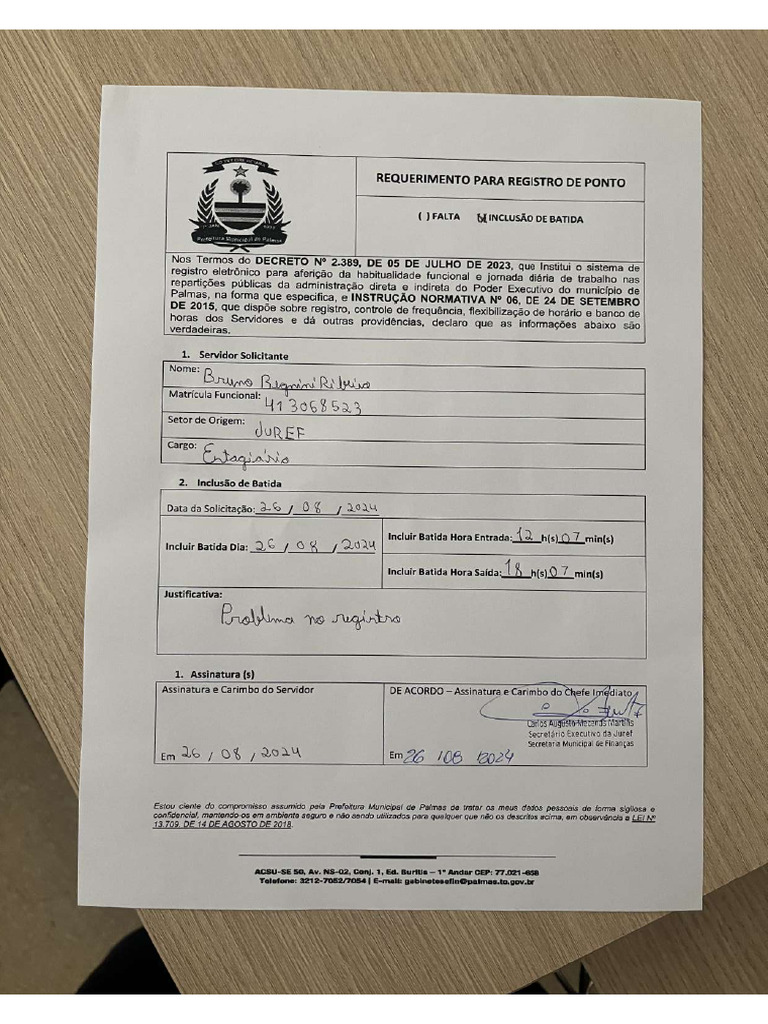 REQUERIMENTO PARA REGISTRO DE PONTO
( ) FALTA (X) INCLUSÃO DE BATIDA
Prefeitura Municipal de Palmas
Nos Termos do DECRETO Nº 2.389, DE 05 DE JULHO DE 2023, que Institui o sistema de
registro eletrônico para aferição da habitualidade funcional e jornada diária de trabalho nas
repartições públicas da administração direta e indireta do Poder Executivo do município de
Palmas, na forma que especifica, e INSTRUÇÃO NORMATIVA Nº 06, DE 24 DE SETEMBRO
DE 2015, que dispõe sobre registro, controle de frequência, flexibilização de horário e banco de
horas dos Servidores e dá outras providências, declaro que as informações abaixo são
verdadeiras.
1. Servidor Solicitante
Nome: Bruno Regnini Ribeiro
Matrícula Funcional: 413068523
Setor de Origem: JUREF
Cargo: Entagiário
2. Inclusão de Batida
Data da Solicitação: 26 / 08 / 2024
Incluir Batida Dia: 26 / 08 / 2024
Incluir Batida Hora Entrada: 12 h(s) 07 min(s)
Incluir Batida Hora Saída: 18 h(s) 07 min(s)
Justificativa:
Problema no registro
1. Assinatura (s)
Assinatura e Carimbo do Servidor
Em 26 / 08 / 2024
DE ACORDO – Assinatura e Carimbo do Chefe Imediato
Carlos Augusto Mecenas Martins
Secretário Executivo da Juref
Secretaria Municipal de Finanças
Em 26 / 08 / 2024
Estou ciente do compromisso assumido pela Prefeitura Municipal de Palmas de tratar os meus dados pessoais de forma sigilosa e
confidencial, mantendo-os em ambiente seguro e não sendo utilizados para qualquer que não os descritos acima, em observância a LEI Nº
13.709, DE 14 DE AGOSTO DE 2018.
ACSU-SE 50, Av. NS-02, Conj. 1, Ed. Buritis – 1º Andar CEP: 77.021-658
Telefone: 3212-7052/7054 | E-mail: gabinetesefin@palmas.to.gov.br